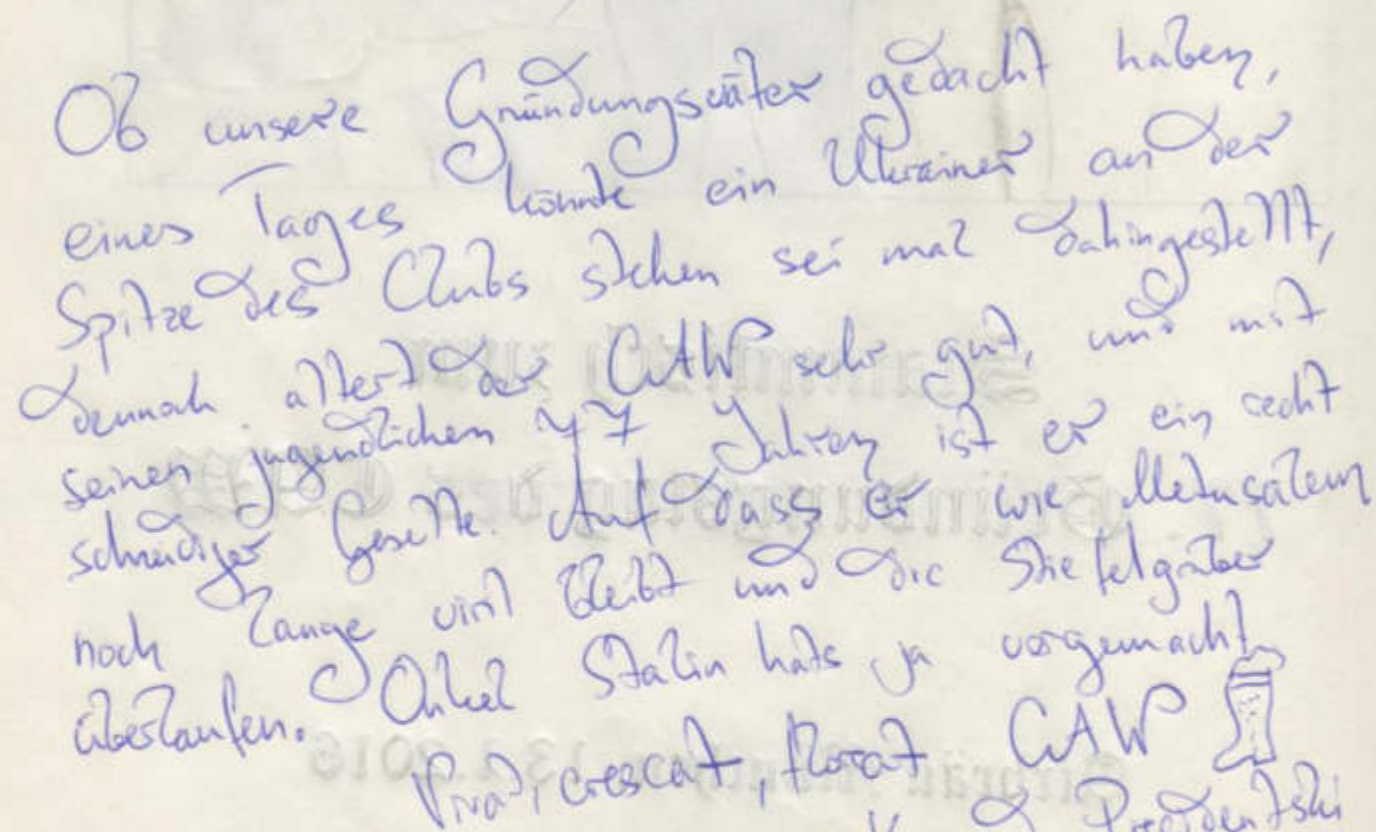 Ob unsere Gründungsväter gedacht haben,
eines Tages könnte ein Ukrainer an der
Spitze des Clubs stehen sei mal dahingestellt,
dennoch altert der CAW sehr gut, und mit
seinen jugendlichen 47 Jahren ist er ein recht
schneidiger Geselle. Auf dass er wie Metusalem
noch lange viril bleibt und die Stiefelgräber
überlaufen. Onkel Stalin hats ja vorgemacht
Vivat, crescat, floreat CAW
Präsidentski